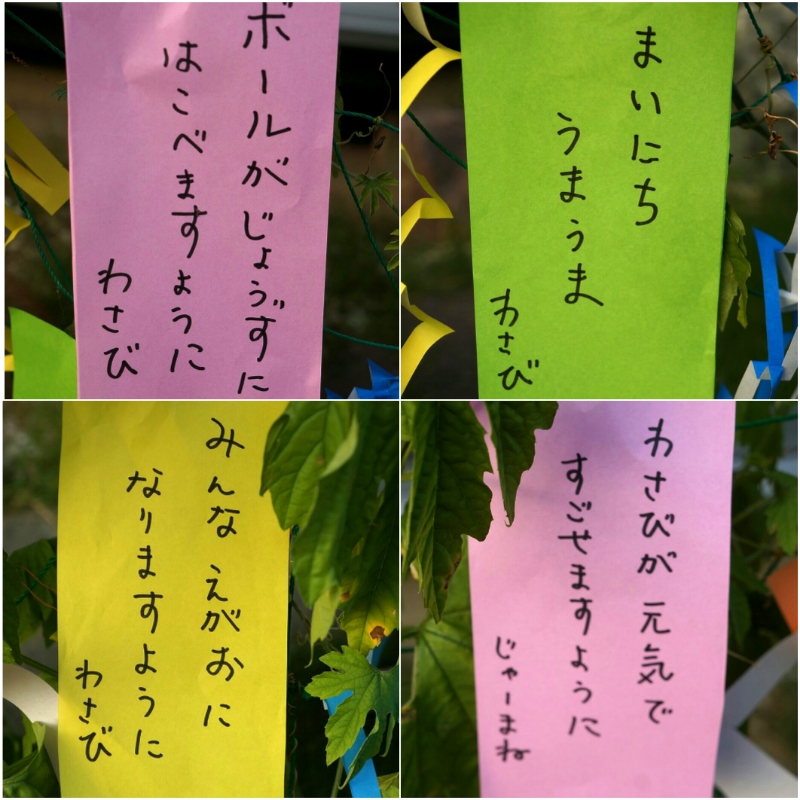 ボールがじょうずに
はこべますように
わさび
まいにち
うまうま
わさび
みんな えがおに
なりますように
わさび
わさびが 元気で
すごせますように
じゃーまね